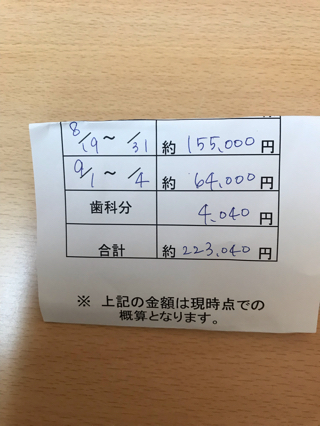 8/19～/31 約 155,000 円
9/1～/4 約 64,000 円
歯科分 4,040 円
合計 約 223,040 円
※ 上記の金額は現時点での
概算となります。